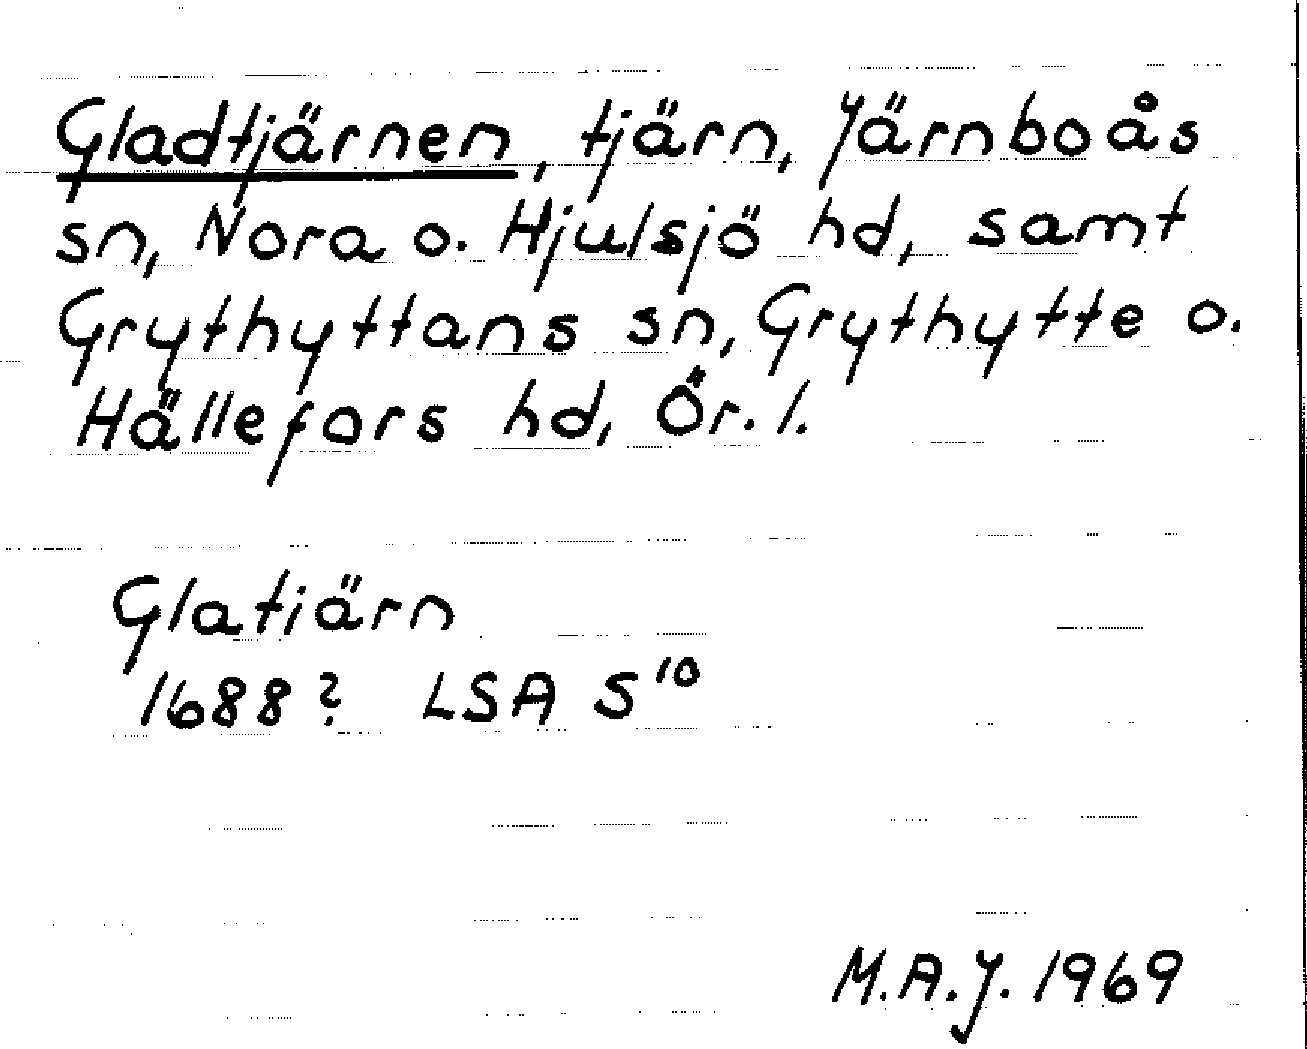 Gladtjärnen, tjärn, Järnboås
sn, Nora o. Hjulsjö hd, samt
Grythyttans sn, Grythytte o.
Hällefors hd, Ör. l.
Glatiärn
1688? LSA S¹⁰
M.A.J. 1969